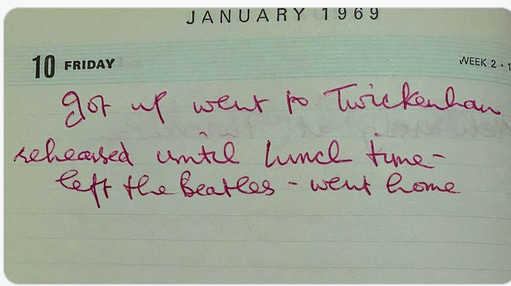 JANUARY 1969
10 FRIDAY WEEK 2 · 1
got up went to Twickenham
rehearsed until lunch time -
left the Beatles - went home